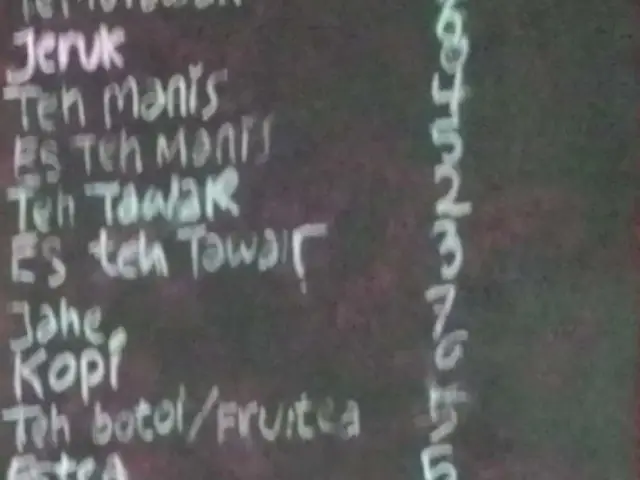 Jeruk
Teh Manis 4
Es Teh Manis 5
Teh Tawar 2
Es teh Tawar 3
Jahe 7
Kopi 6
Teh botol/Fruitea
Estea 5